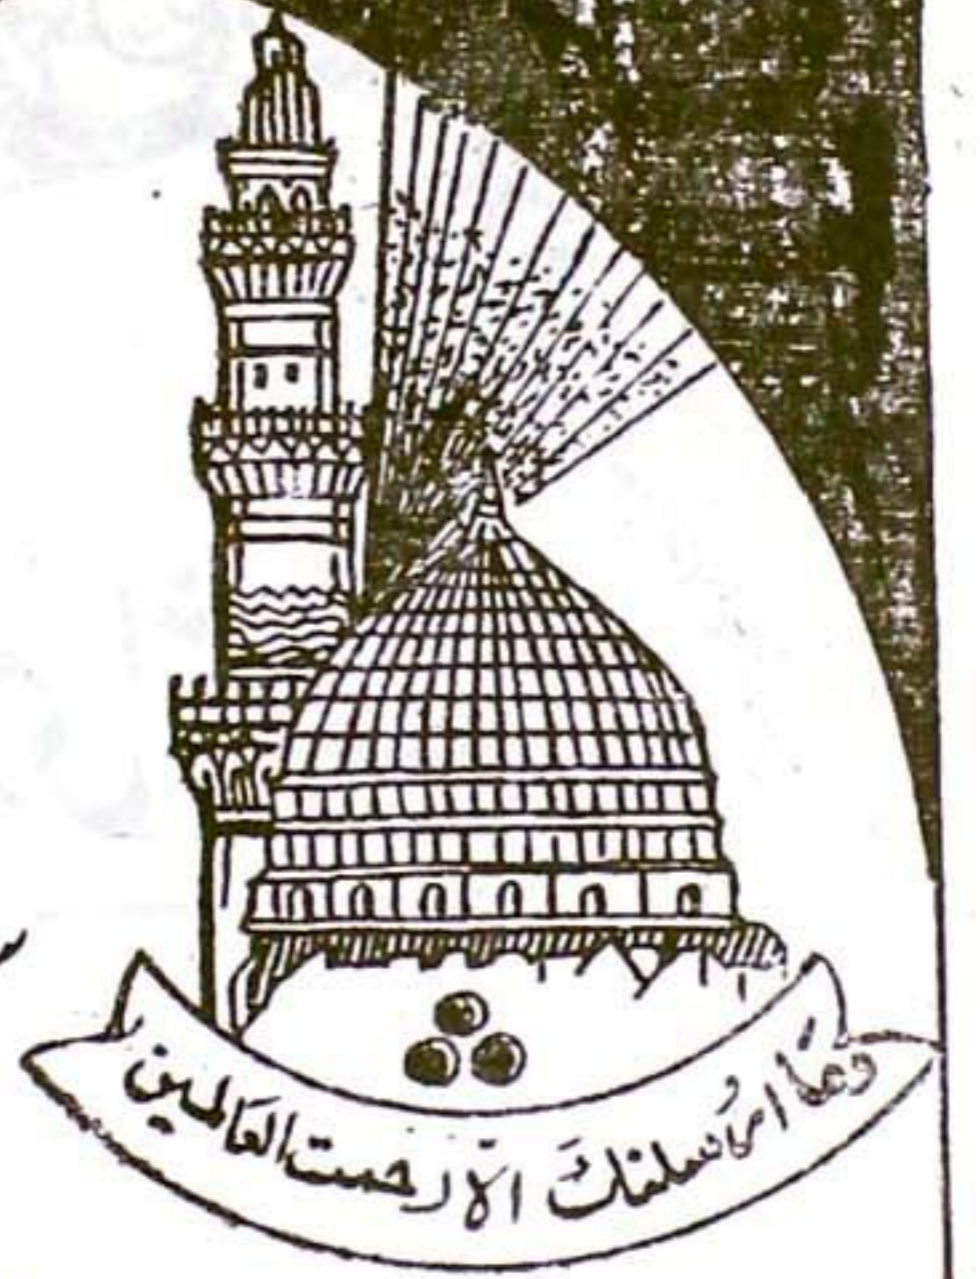 وَمَا اَرْسلنٰكَ الاّ رحمت العَالمین